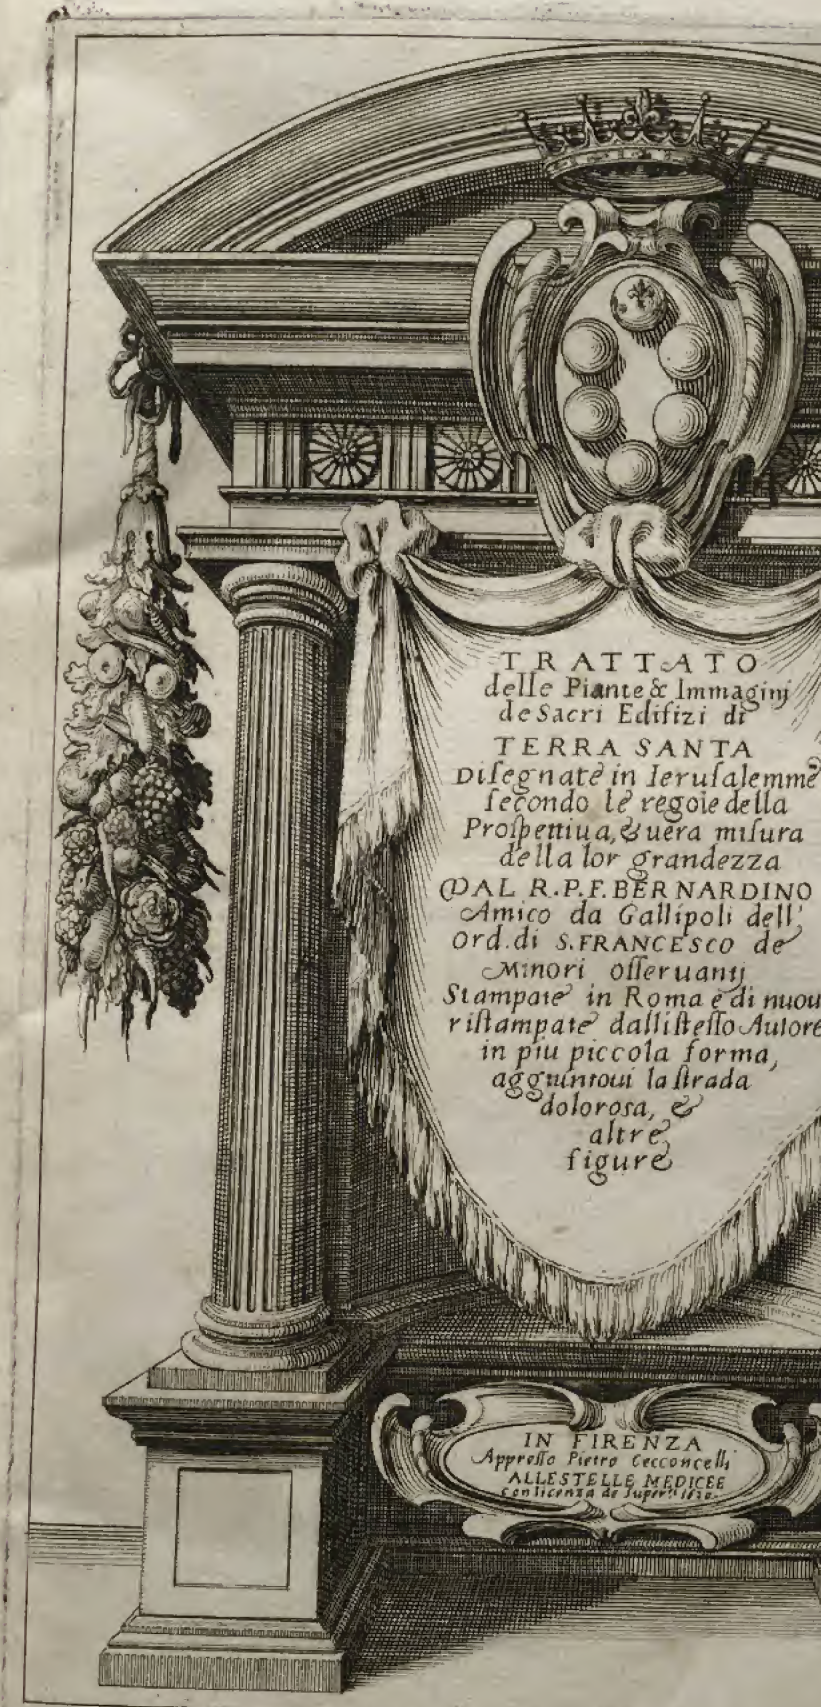 TRATTATO
delle Piante & Immaginj
de Sacri Edifizi di
TERRA SANTA
Diſegnate in Ieruſalemme
ſecondo le regole della
Proſpettiua, & uera miſura
della lor grandezza
DAL R.P.F. BERNARDINO
Amico da Gallipoli dell'
Ord. di S. FRANCESCO de
Minori oſſeruantj
Stampate in Roma e di nuou
riſtampate dalliſteſſo Autore
in piu piccola forma,
aggiuntoui la ſtrada
dolorosa, &
altre
figure
IN FIRENZA
Appreſſo Pietro Cecconcelli
ALLE STELLE MEDICEE
con licenza de Super.ri 1620.